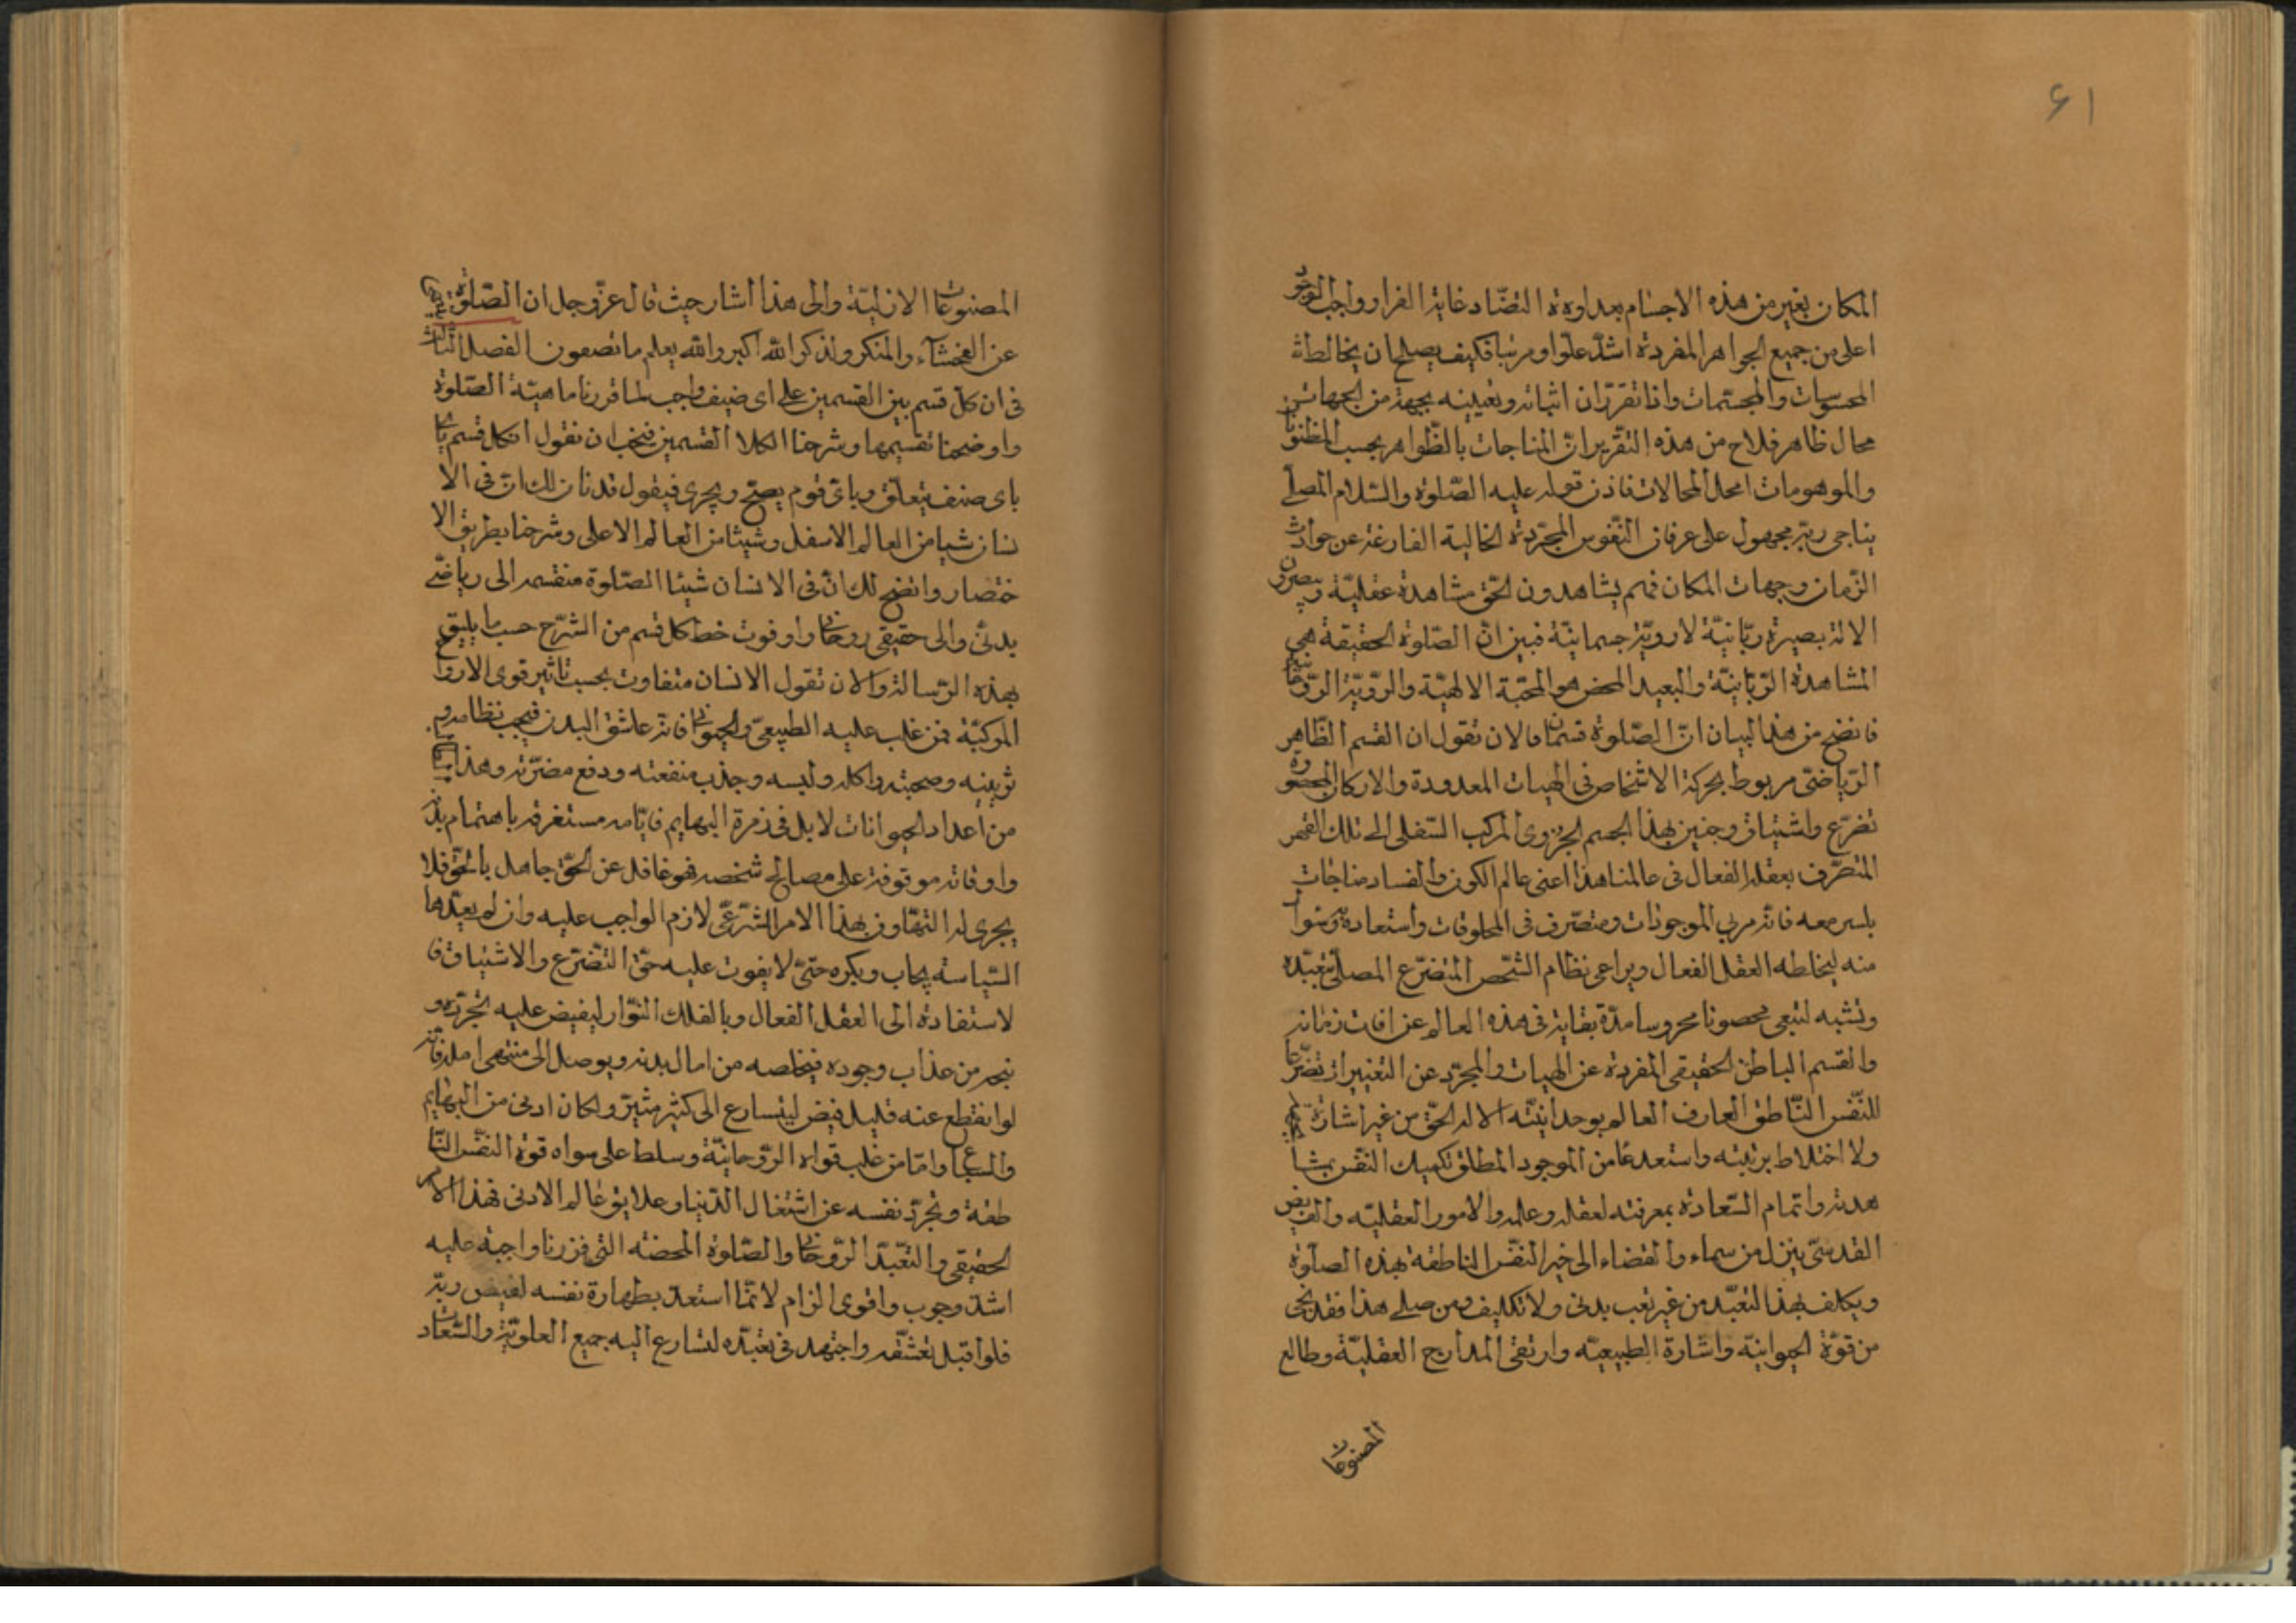 ۶۱
المكان بغير من هذه الاجسام بعداوة التضاد غاية الفرار وواجب الوجود
اعلى من جميع الجواهر المفردة اشد علوا ومرتبا فكيف يصلح ان يخالطه
المحسوسات والمجسمات واذا تقرر ان اثباته وتعيينه بجهة من الجهات
محال ظاهر فلاح من هذه التقرير ان المناجات بالظواهر بحسب المظنونات
والموهومات امحل المحالات فاذن قوله عليه الصلوة والسلام المصلى
يناجى ربه مجهول على عرفان النفوس المجردة الخالية الفارغة عن حوادث
الزمان وجهات المكان فهم يشاهدون الحق مشاهدة عقلية ويبصرون
الاله بصيرة ربانية لا روية جسمانية فبين ان الصلوة الحقيقة هى
المشاهدة الربانية والبعيد المحض هو المحبة الالهية والروية الروحانية
فاتضح من هذا البيان ان الصلوة قسمان فالان نقول ان القسم الظاهر
الرياضى مربوط بحركة الاشخاص فى الهيات المعدودة والاركان المحصورة
تضرع واشتياق وحنين بهذا الجسم الجزوى المركب السفلى الى تلك القمر
المتصرف بعقله الفعال فى عالمنا هذا اعنى عالم الكون والفساد مناجات
بلسر معه فانه مربى الموجودات ومتصرف فى المخلوقات واستعاده
منه ليخالطه العقل الفعال ويراعى نظام الشخص المتضرع المصلى بتعبده
وتشبه لتبقى محصونا محروسا مدة بقايه فى هذه العالم عن افات زمانه
والقسم الباطن الحقيقى المفردة عن الهيات والمجرد عن التغييرات تضرعا
للنفس الناطق العارف العالم بوحدانيته الاله الحق من غير اشارة
ولا اختلاط برتبته واستعدعا من الموجود المطلق تكميلك النفس بمشا
هدته واتمام السعادة بمعرفته لعقله وعلمه والامور العقليه والفيض
القدسى ينزل من سماء والقضاء الى خير النفس الناطقة بهذه الصلوة
ويكلف بهذا التعبد من غير تعب بدنى ولا تكليف ومن صلى هذا فقد نجى
من قوة الحيوانية واشارة الطبيعيه وارتقى المدارج العقلية وطالع
المصنوعات
المصنوعات الازلية والى هذا اشار حيث قال عز وجل ان الصلوة تنهى
عن الفحشآء والمنكر ولذكر الله اكبر والله يعلم ما تصعون الفصل الثالث
فى ان كل قسم بين القسمين على اى ضيف واجب لما قررنا ماهية الصلوة
واوضحنا تقسيمها وشرحنا الكلا القسمين فيجب ان نقول ان كل قسم
باى صنف يتعلق وباى قوم يصح ويجرى فيقول قد بان لك ان فى الا
نسان شيا من العالم الاسفل وشيئا من العالم الاعلى وشرحنا بطريق الا
ختصار واتضح لك ان فى الانسان شيئا الصلوة منقسمه الى رياضى
بدنى والى حقيقى روحانى واوفوت خط كل قسم من الشرح حسب ما يليق
بهذه الرسالة والان نقول الانسان متفاوت بحسب تاثير قوى الارواح
المركبة فمن غلب عليه الطبيعى والحيوانى فانه عاشق البدن فيحب نظامه و
تزيينه وصحبته واكله ولبسه وجذب منفعته ودفع مضرته وهذا
من اعداد الحيوانات لا بل فى زمرة البهايم فايامه مستغرقه باهتمام بدنه
واوقاته موقوفة على مصالح شخصه فهو غافل عن الحق جاهل بالحق فلا
يجرى له التهاون بهذا الامر الشرعى لازم الواجب عليه وان لم يعيدها
السياسة يحاب ويكره حتى لا يفوت عليه حق التضرع والاشتياق فا
لاستفادة الى العقل الفعال وبالفلك النوار ليفيض عليه بجوده و
نيجر من عذاب وجوده فيخلصه من امال بدنه ويوصل الى منتهى امله فانه
لو انقطع عنه قليل فيض ليتسارع الى كثير مثير ولكان ادنى من البهايم
والسباع واما من غلب قواه الروحانية وسلط على سواه قوة النفس النا
طقة وتجرد نفسه عن اشتغال الدنيا وعلايق عالم الادنى فهذا الامر
الحقيقى والتعبد الروحانى والصلوة المحضه التى قررنا واجبة عليه
اشد وجوب واقوى الزام لانما استعد بطهارة نفسه لفيض ربه
فلو اقبل بعشقه واجتهد فى تعبده لتسارع اليه جميع العلوية والسعادات